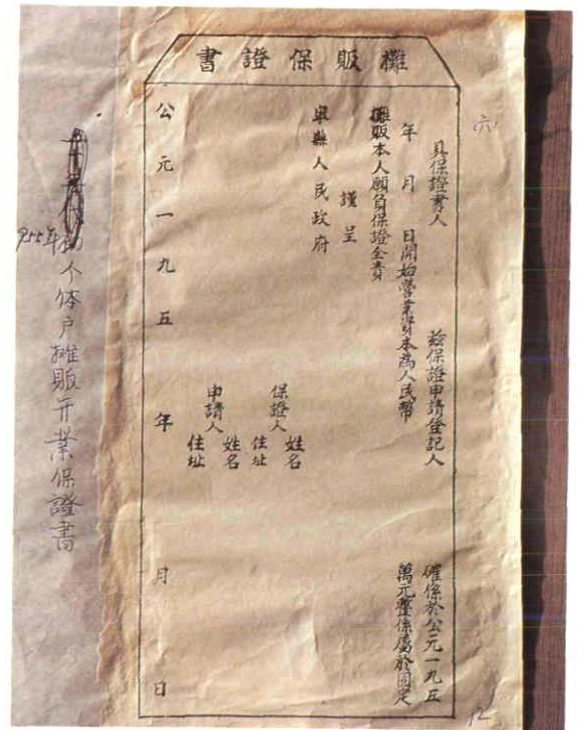 攤販保證書
具保證書人 茲保證申請登記人 確係於公元一九五
年 月 日開始營業資本為人民幣 萬元整係屬於固定
攤販本人願負保證全責
謹呈
皋縣人民政府
保證人
姓名
住址
申請人
姓名
住址
公元一九五 年 月 日
955年
个体户摊販开業保證書
六
12